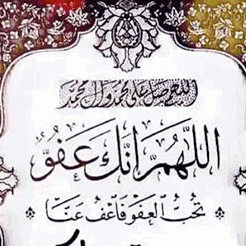 اللهم صل على محمد وآل محمد
اللهم إنك عفو
تحب العفو فاعف عنا